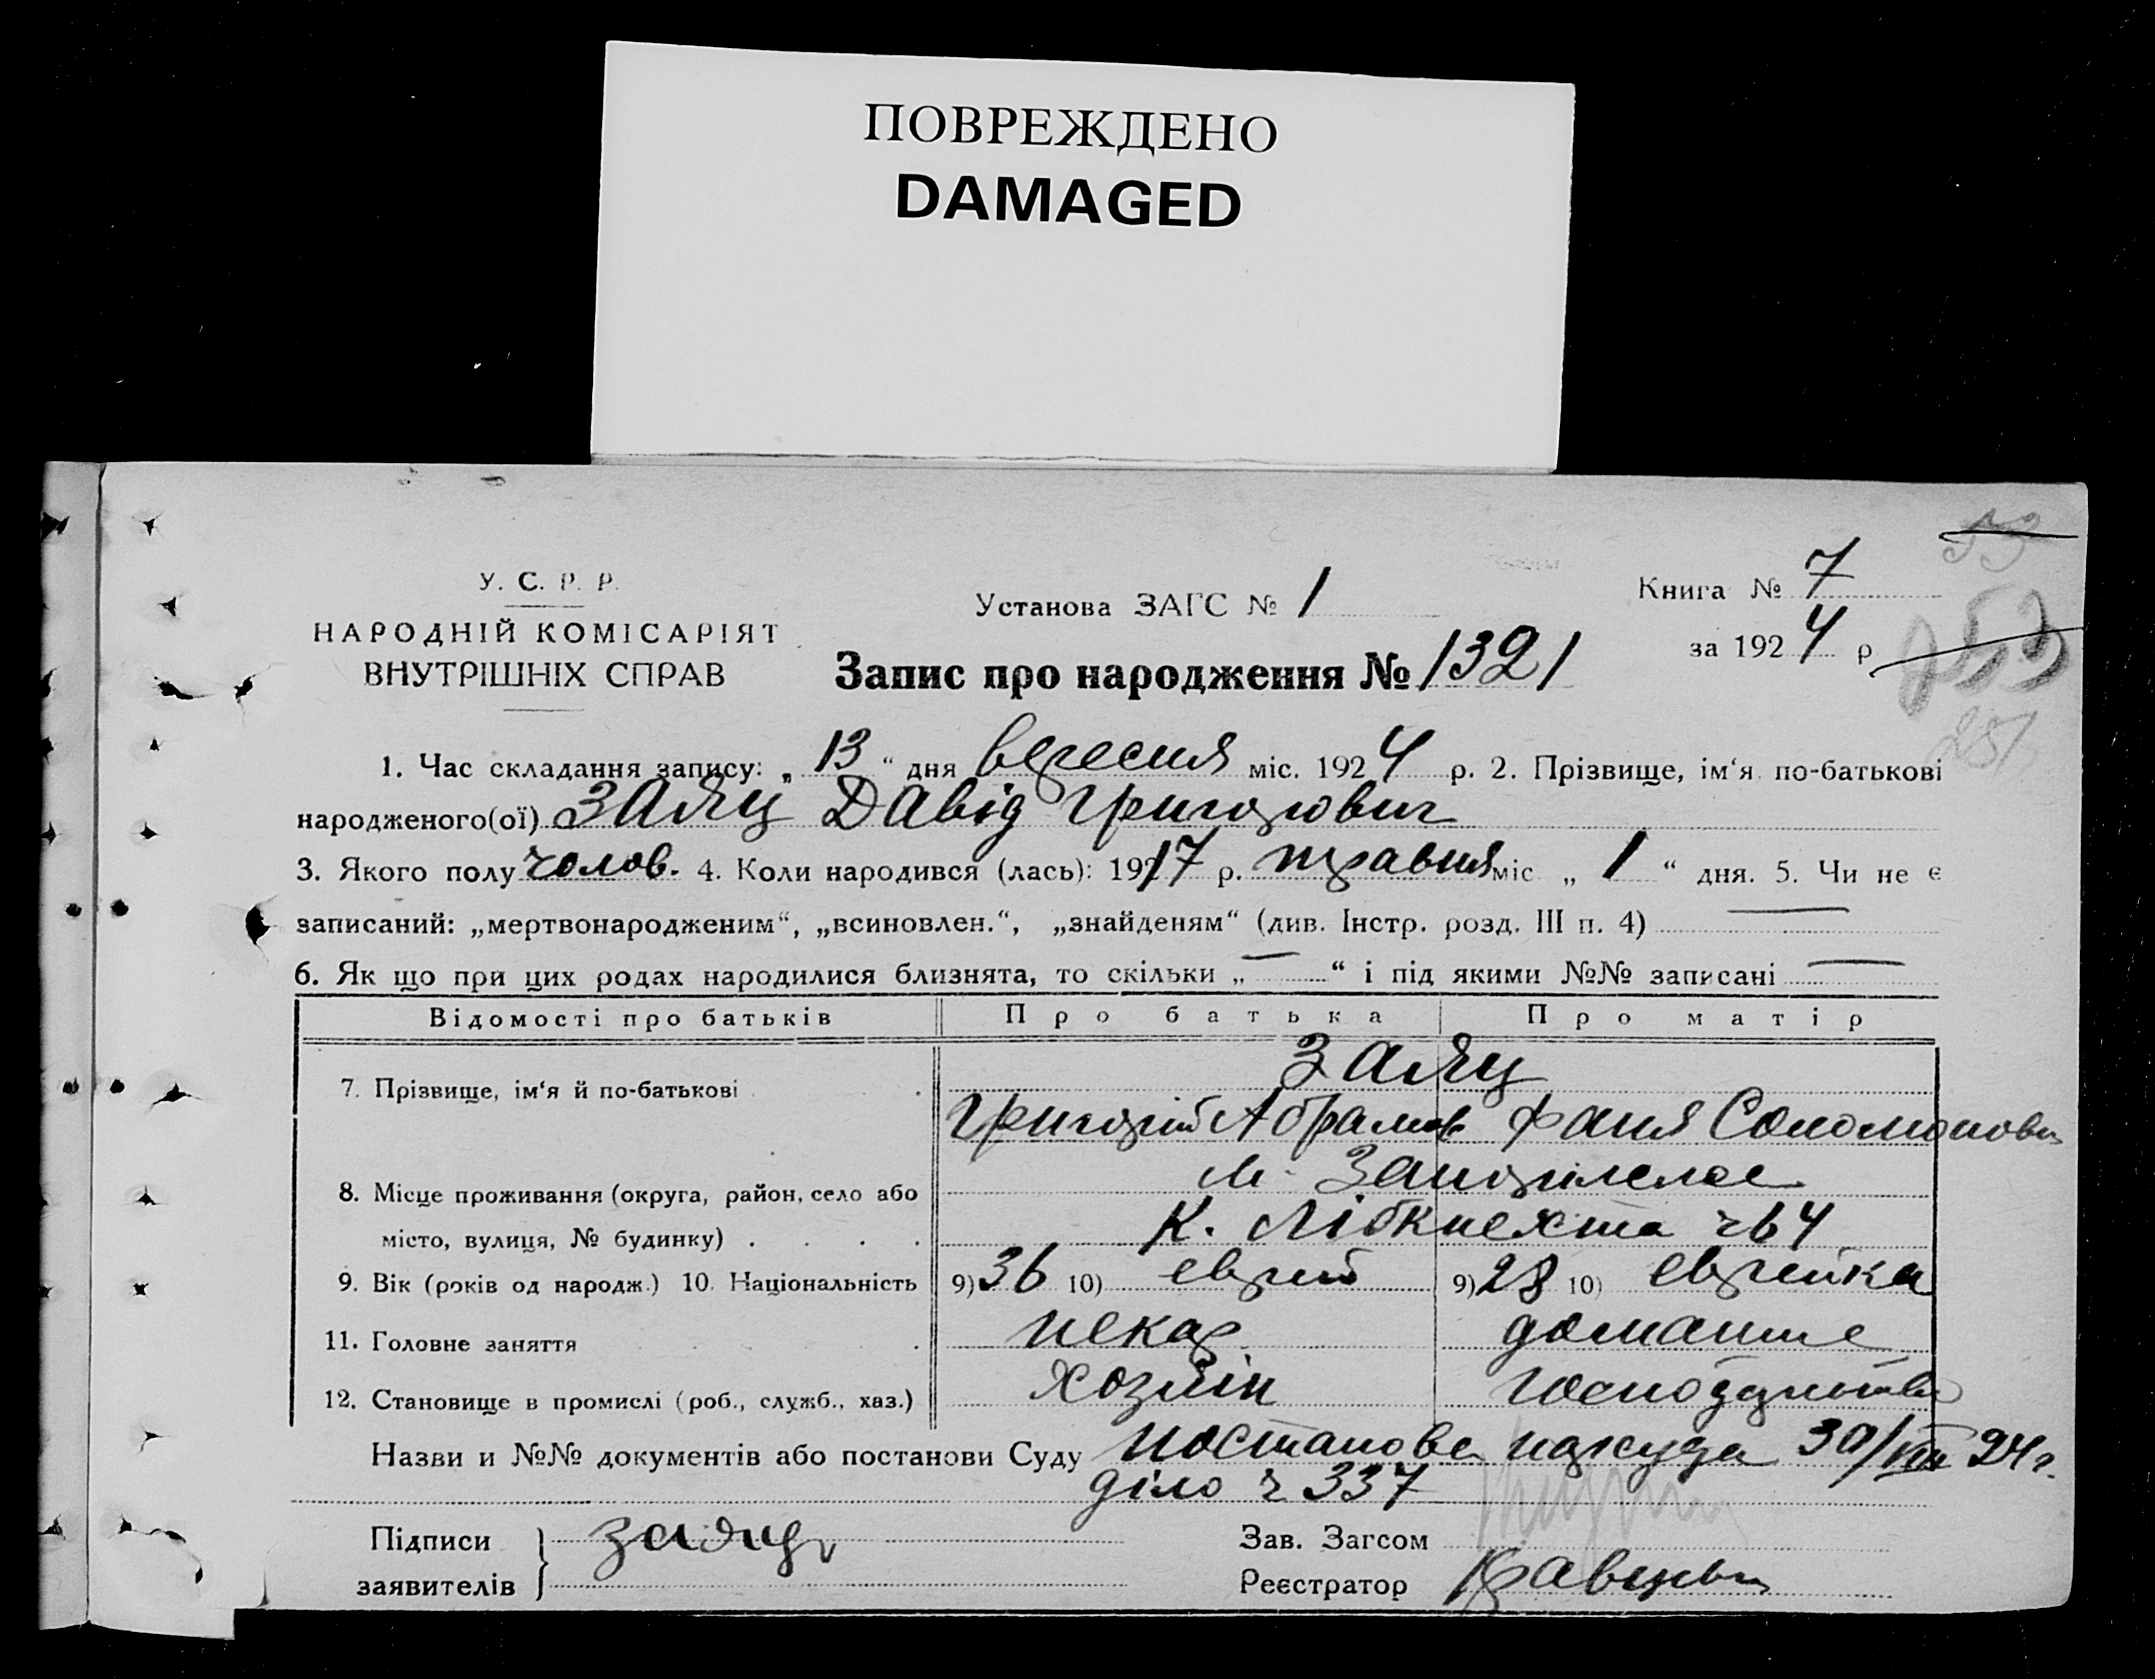 ПОВРЕЖДЕНО
DAMAGED
53
У. С. Р. Р.
НАРОДНІЙ КОМІСАРІЯТ
ВНУТРІШНІХ СПРАВ
Установа ЗАГС № 1
Книга № 7
за 1924 р
253
281
Запис про народження № 1321
1. Час складання запису: „ 13 “ дня вересня міс. 1924 р. 2. Прізвище, ім‘я по-батькові
народженого(ої) Заяц Давід Григорович
3. Якого полу чолов. 4. Коли народився (лась): 1917 р. травня міс „ 1 “ дня. 5. Чи не є
записаний: „мертвонародженим“, „всиновлен.“, „знайденям“ (див. Інстр. розд. III п. 4) —
6. Як що при цих родах народилися близнята, то скільки „ — “ і під якими №№ записані —
Відомості про батьків Про батька Про матір
7. Прізвище, ім‘я й по-батькові Заяц
Григорій Абрамов Фаня Соломоновн
8. Місце проживання (округа, район, село або м.
місто, вулиця, № будинку) К. Лібкнехта ч 64
9. Вік (років од народж.) 10. Національність 9) 36 10) еврей 9) 28 10) еврейка
11. Головне заняття пекар домашнє
12. Становище в промислі (роб., служб., хаз.) хозяін господарство
Назви и №№ документів або постанови Суду постанова нарсуда 30/VIII 24 г.
діло ч 337
Підписи заяц
заявителів
Зав. Загсом
Реєстратор